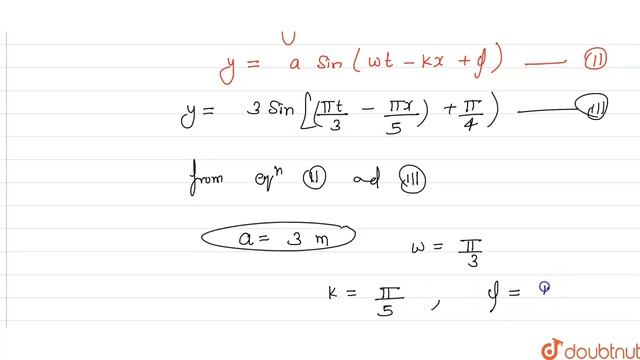 y = a sin(ωt - kx + ϕ) — (II)
y = 3 sin[(πt/3 - πx/5) + π/4) — (III)
from eqⁿ (II) ad (III)
a = 3 m
ω = π/3
k = π/5 , ϕ =
doubtnut